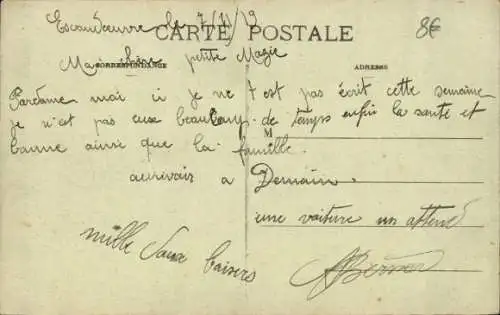 Escaudœuvre le 7/11/13
8€
CARTE POSTALE
Ma chère petite Magie
CORRESPONDANCE
ADRESSE
Pardone moi ci je ne t'est pas écrit cette semaine
je n'est pas eux beaucoup de temps enfin la santé et
M
bonne ainsi que la famille.
a Demain.
une voiture
mille doux baisers